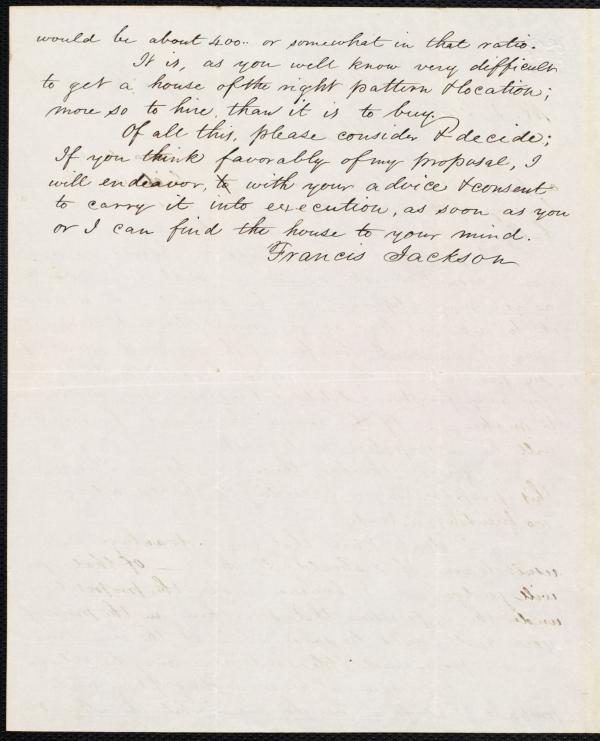 would be about 400.. or somewhat in that ratio.
It is, as you well know very difficult
to get a house of the right pattern & location;
more so to hire, than it is to buy.
Of all this, please consider & decide;
If you think favorably of my proposal, I
will endeavor, to with your advice & consent
to carry it into execution, as soon as you
or I can find the house to your mind.
Francis Jackson